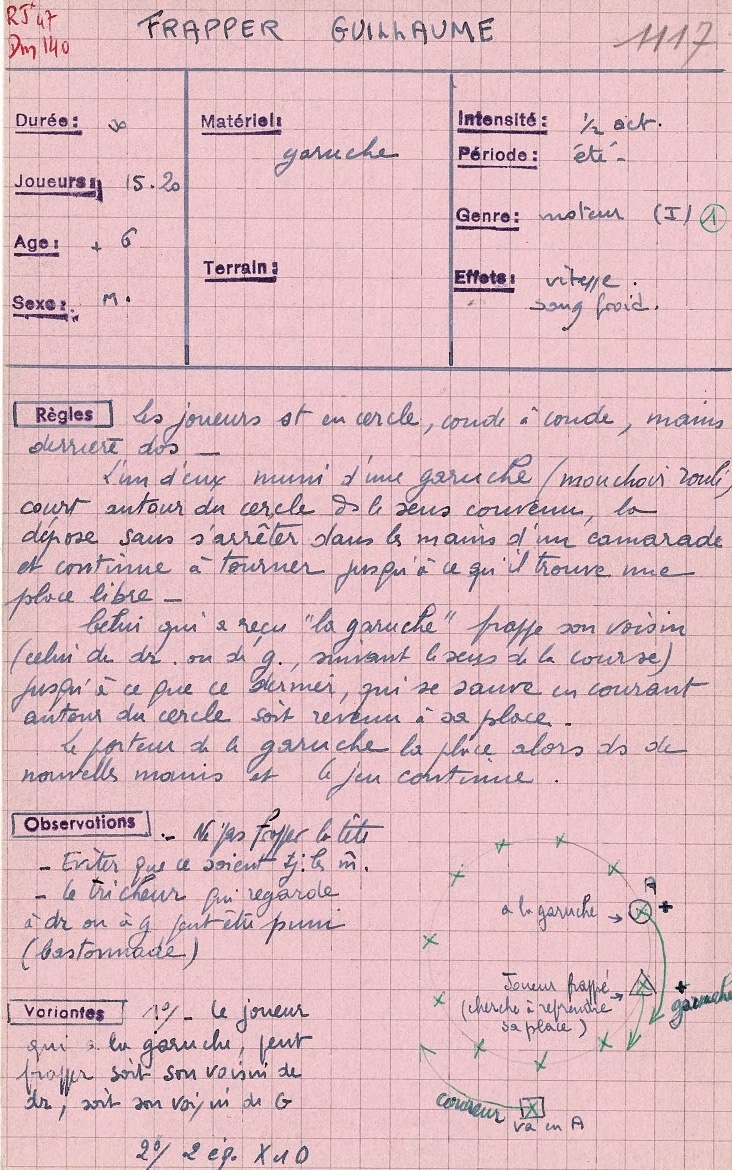 RJ 47
Dm 140
FRAPPER GUILLAUME
1117
Durée: ∞
Joueurs: 15.20
Age: + 6
Sexe: M.
Matériel:
garuche
Terrain:
Intensité: 1/2 act.
Période: été -
Genre: moteur (I) 1
Effets: vitesse.
sang froid.
Règles Les joueurs st en cercle, coude à coude, mains
derrière dos -
L'un d'eux muni d'une garuche (mouchoir roulé)
court autour du cercle ds le sens convenu, la
dépose sans s'arrêter dans les mains d'un camarade
et continue à tourner jusqu'à ce qu'il trouve une
place libre -
Celui qui a reçu "la garuche" frappe son voisin
(celui de dr. ou de g., suivant le sens de la course)
jusqu'à ce que ce dernier, qui se sauve en courant
autour du cercle soit revenu à sa place.
Le porteur de la garuche la place alors ds de
nouvelles mains et le jeu continue.
Observations - Ne pas frapper la tête
- Eviter que ce soient tj. les m̂.
- Le tricheur qui regarde
à dr ou à g peut être puni
(bastonnade)
A
a la garuche
Joueur frappé
(cherche à reprendre
sa place)
garuche
coureur
va en A
Variantes 1°/ - Le joueur
qui a la garuche, peut
frapper soit son voisin de
dr, soit son voisin de G
2°/ 2 éq. X et O